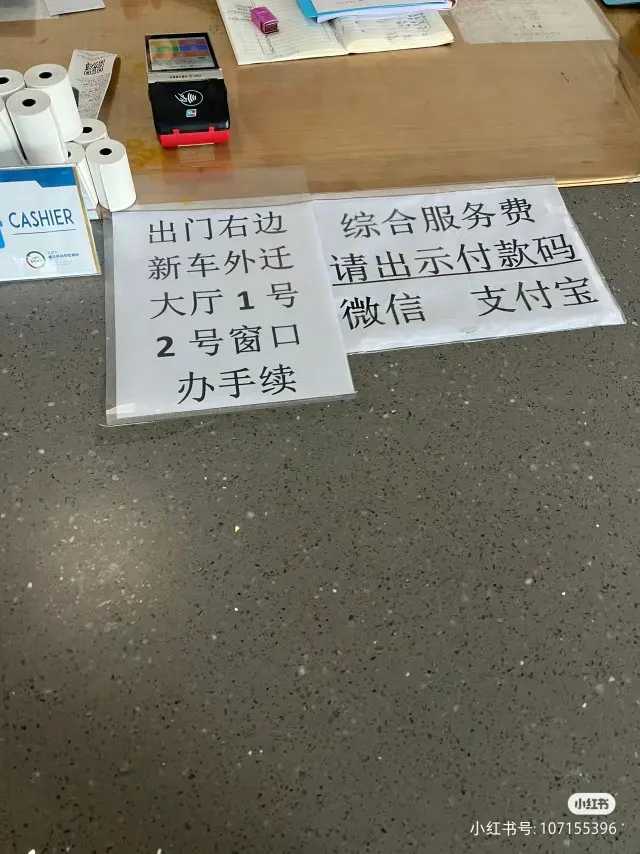 CASHIER
出门右边
新车外迁
大厅 1 号
2 号窗口
办手续
综合服务费
请出示付款码
微信 支付宝
小红书
小红书号: 107155396